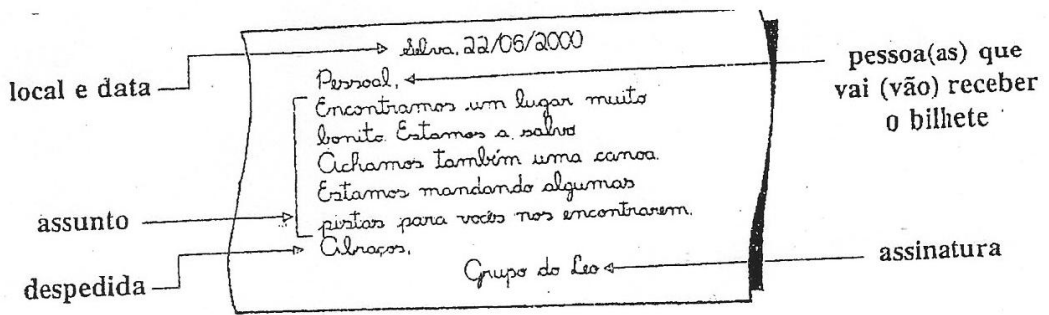 Selva, 22/06/2000
local e data
Pessoal,
pessoa(as) que
vai (vão) receber
o bilhete
Encontramos um lugar muito
bonito. Estamos a salvo
Achamos também uma canoa.
Estamos mandando algumas
pistas para vocês nos encontrarem.
assunto
Abraços,
despedida
Grupo do Leo
assinatura